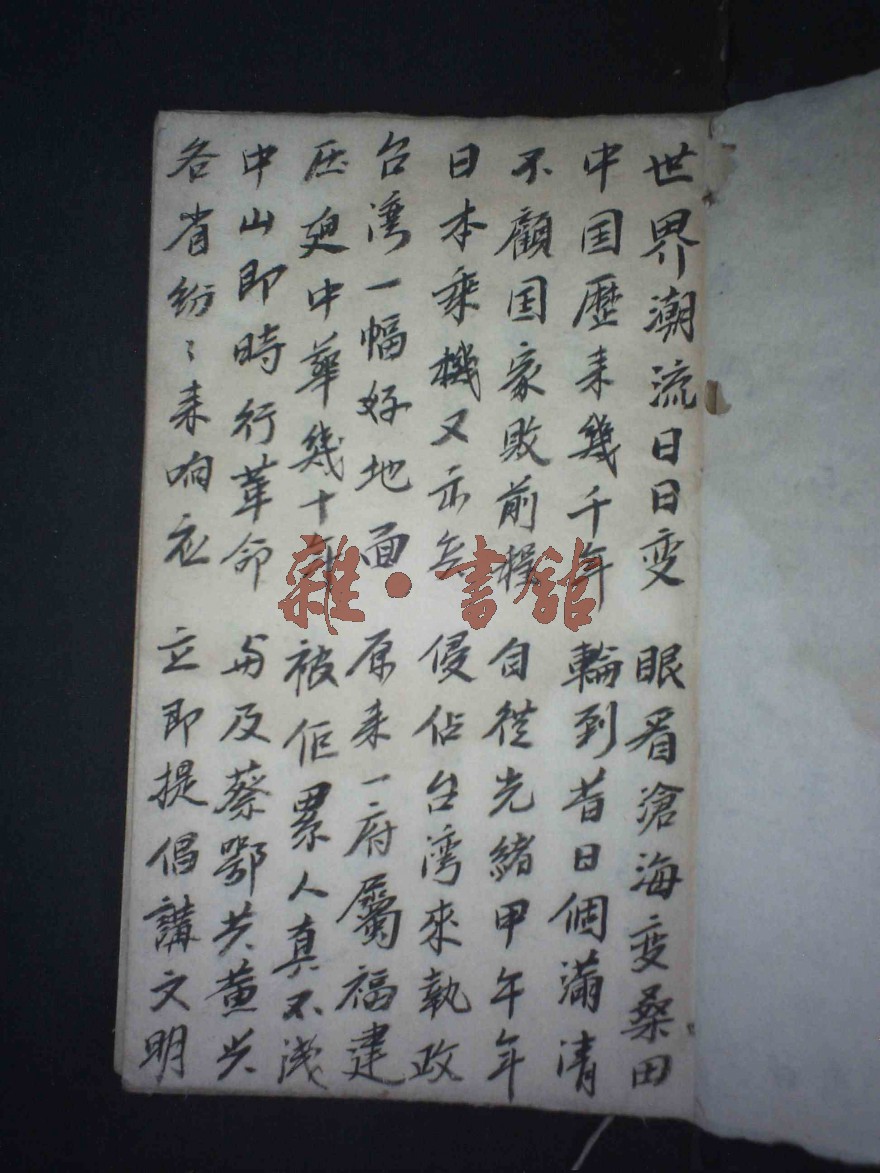 世界潮流日日变 眼看滄海变桑田
中国歷来幾千年 輪到昔日個滿清
不顧国家敗前程 自従光緒甲午年
日本乘機又亦 侵佔台湾來執政
台湾一幅好地面 原来一府屬福建
压 中華幾十年 被佢累人真不浅
中山即時行革命 与及蔡鄂共黄兴
各省紛〻来响应 立即提倡講文明
雜·書舘